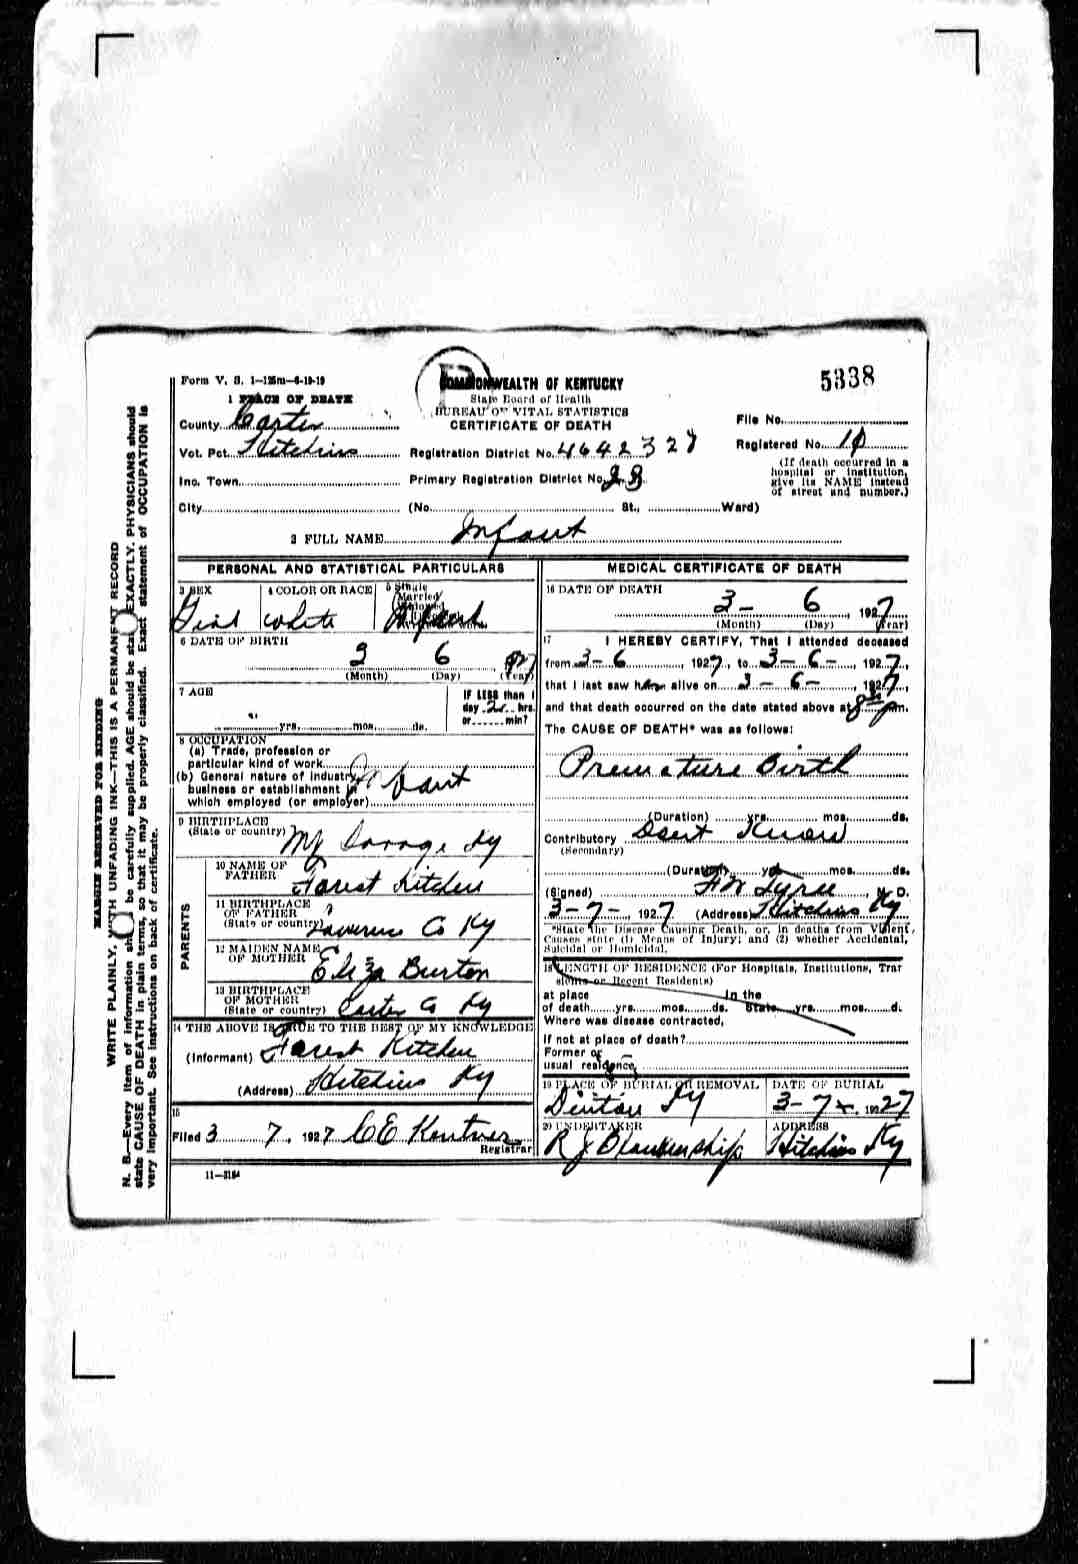 Form V. S. 1—125m—6-19-19
COMMONWEALTH OF KENTUCKY
5338
1 PLACE OF DEATH
State Board of Health
BUREAU OF VITAL STATISTICS
CERTIFICATE OF DEATH
County Carter
File No.
Vot. Pct. Hitchins
Registration District No. 4642 328
Registered No. 10
(If death occurred in a hospital or institution, give its NAME instead of street and number.)
Inc. Town
Primary Registration District No.
City (No. St., Ward)
2 FULL NAME Infant
PERSONAL AND STATISTICAL PARTICULARS
3 SEX Girl
4 COLOR OR RACE white
5 Single Married Infant
6 DATE OF BIRTH
3 6 , 1927
(Month) (Day) (Year)
7 AGE
yrs. mos. ds.
IF LESS than 1
day 2 hrs.
or min?
8 OCCUPATION
(a) Trade, profession or
particular kind of work
(b) General nature of industry
business or establishment in
which employed (or employer)
Infant
9 BIRTHPLACE
(State or country) Ky
10 NAME OF
FATHER Forest Kitchen
11 BIRTHPLACE
OF FATHER
(State or country) Lawrence Co Ky
12 MAIDEN NAME
OF MOTHER Eliza Burton
13 BIRTHPLACE
OF MOTHER
(State or country) Carter Co Ky
PARENTS
14 THE ABOVE IS TRUE TO THE BEST OF MY KNOWLEDGE
(Informant) Forest Kitchen
(Address) Hitchins Ky
15
Filed 3 7, 1927 C E
Registrar
11—3184
MEDICAL CERTIFICATE OF DEATH
16 DATE OF DEATH
3- 6 , 1927
(Month) (Day) (Year)
17 I HEREBY CERTIFY, That I attended deceased
from 3-6 , 1927, to 3-6- , 1927,
that I last saw h alive on 3-6- , 1927,
and that death occurred on the date stated above at 8 Pm.
The CAUSE OF DEATH* was as follows:
Premature Birth
(Duration) yrs. mos. ds.
Contributory Dont Know
(Secondary)
(Duration) yrs. mos. ds.
(Signed) M. D.
3-7- , 1927. (Address) Hitchins Ky
*State the Disease Causing Death, or, in deaths from Violent
Causes state (1) Means of Injury; and (2) whether Accidental,
Suicidal or Homicidal.
18 LENGTH OF RESIDENCE (For Hospitals, Institutions, Tran
sients or Recent Residents)
at place In the
of death yrs. mos. ds. State yrs. mos. d.
Where was disease contracted,
If not at place of death?
Former or
usual residence
19 PLACE OF BURIAL OR REMOVAL
Denton Ky
DATE OF BURIAL
3-7- , 1927
20 UNDERTAKER
R J Blankenship
ADDRESS
Hitchins Ky
MARGIN RESERVED FOR BINDING
WRITE PLAINLY, WITH UNFADING INK—THIS IS A PERMANENT RECORD
N. B.—Every item of information should be carefully supplied. AGE should be stated EXACTLY. PHYSICIANS should
state CAUSE OF DEATH in plain terms, so that it may be properly classified. Exact statement of OCCUPATION is
very important. See instructions on back of certificate.